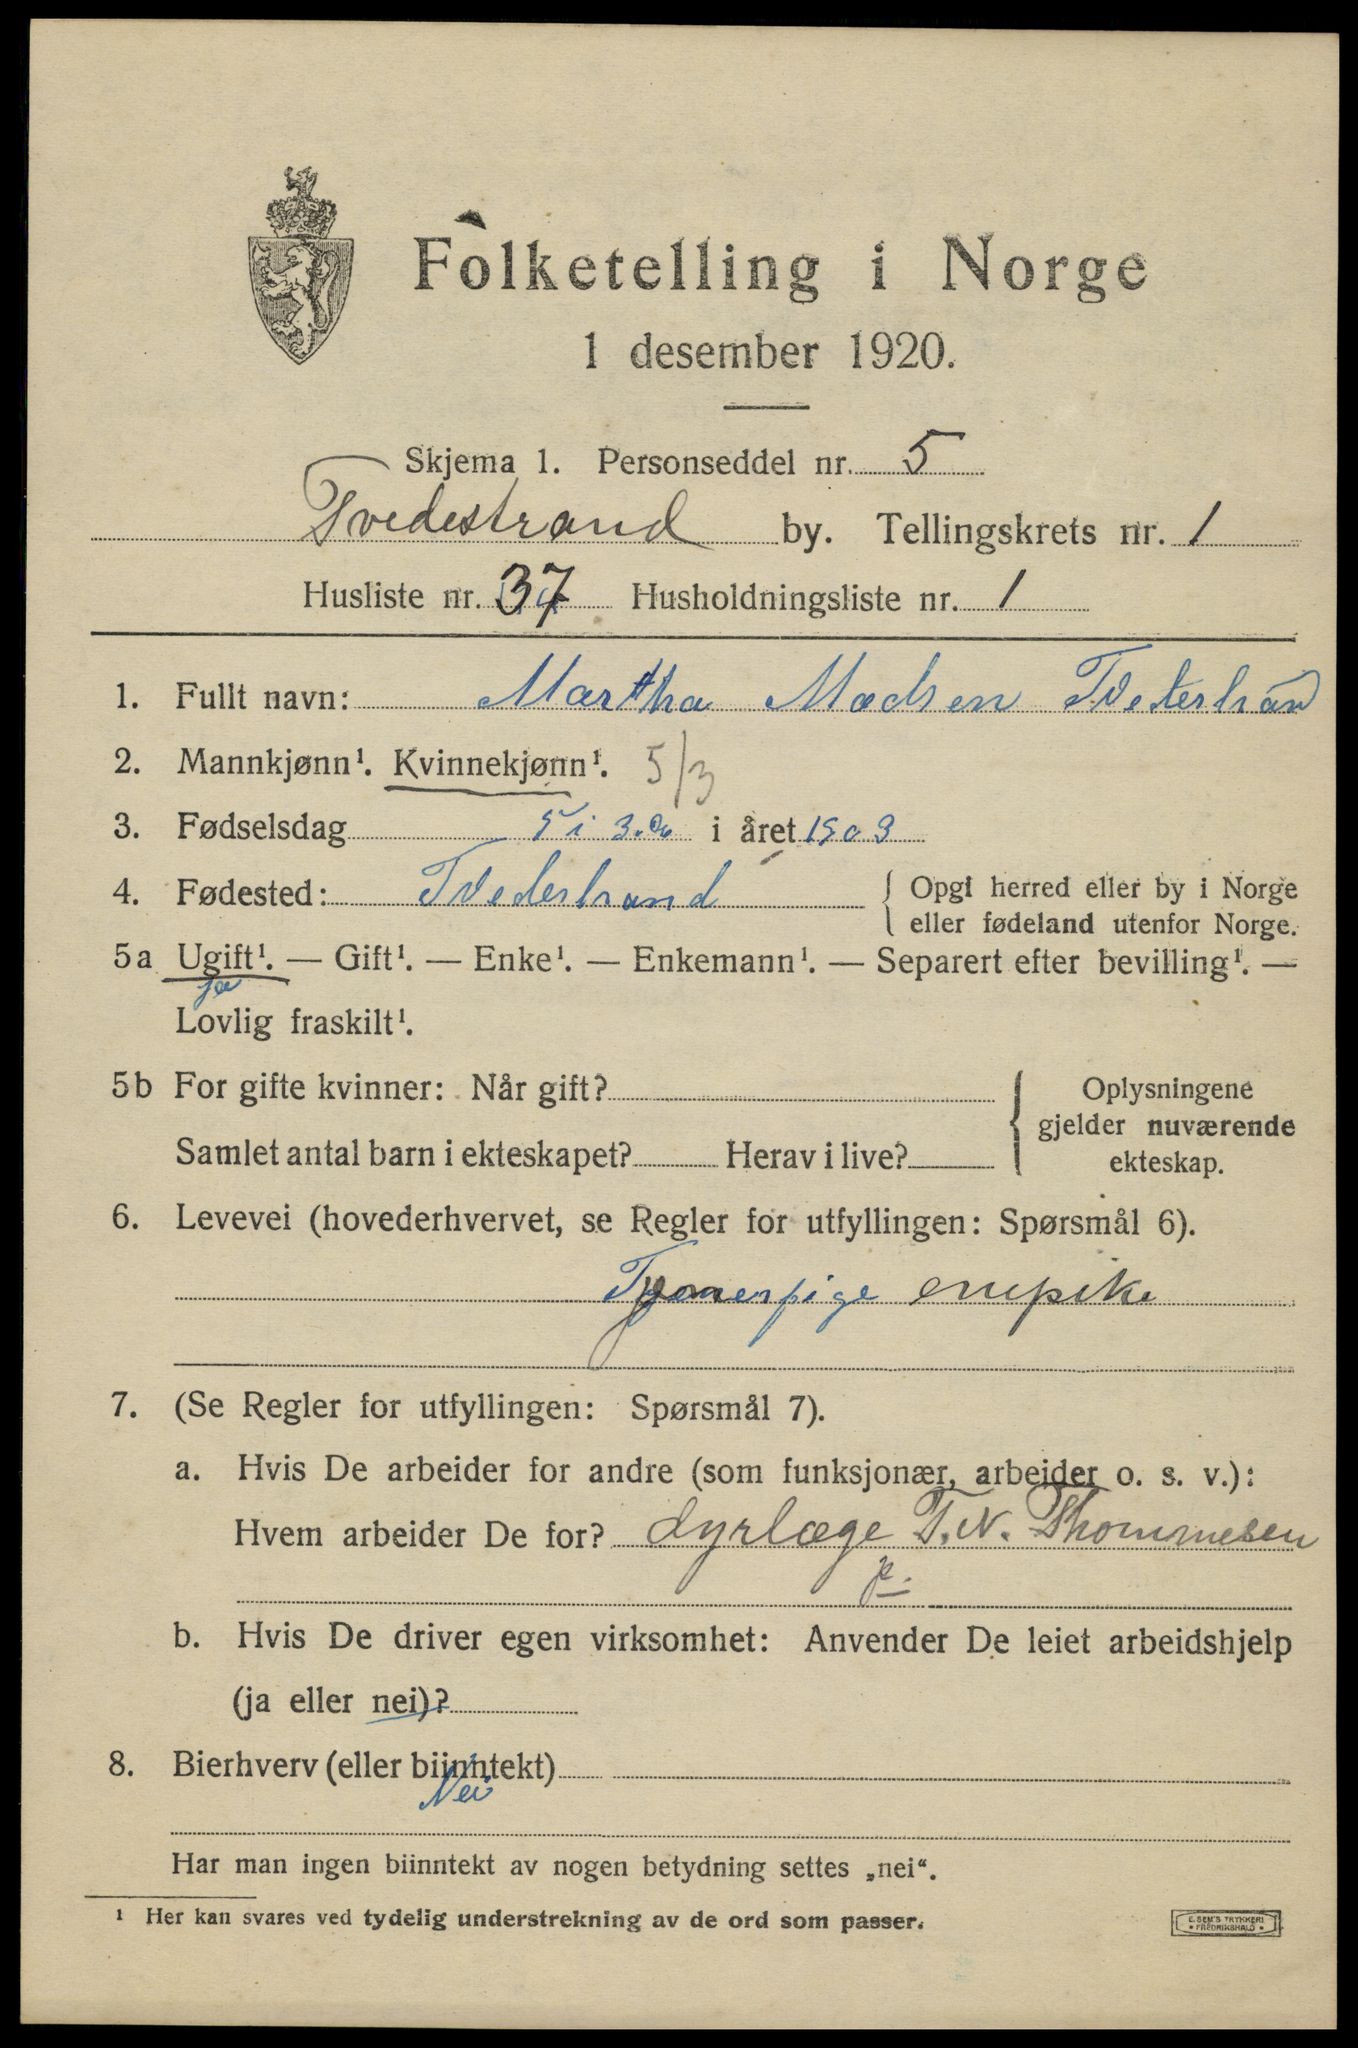 Folketelling i Norge
1 desember 1920.
Skjema 1. Personseddel nr. 5
Tvedestrand by. Tellingskrets nr. 1
Husliste nr. 37 Husholdningsliste nr. 1
1. Fullt navn: Martha Madsen Tvedestrand
2. Mannkjønn¹. Kvinnekjønn¹. 5/3
3. Fødselsdag 5 i 3. i året 1903
4. Fødested: Tvedestrand { Opgi herred eller by i Norge
eller fødeland utenfor Norge.
5a Ugift¹. — Gift¹. — Enke¹. — Enkemann¹. — Separert efter bevilling¹. —
ja
Lovlig fraskilt¹.
5b For gifte kvinner: Når gift? { Oplysningene
gjelder nuværende
Samlet antal barn i ekteskapet? Herav i live? ekteskap.
6. Levevei (hovederhvervet, se Regler for utfyllingen: Spørsmål 6).
7. (Se Regler for utfyllingen: Spørsmål 7).
a. Hvis De arbeider for andre (som funksjonær, arbeider o. s. v.):
Hvem arbeider De for? dyrlæge T. N. Thommesen
p.
b. Hvis De driver egen virksomhet: Anvender De leiet arbeidshjelp
(ja eller nei)?
8. Bierhverv (eller biinntekt)
Nei
Har man ingen biinntekt av nogen betydning settes „nei“.
¹ Her kan svares ved tydelig understrekning av de ord som passer.
E. SEM'S TRYKKERI
• FREDRIKSHALD •